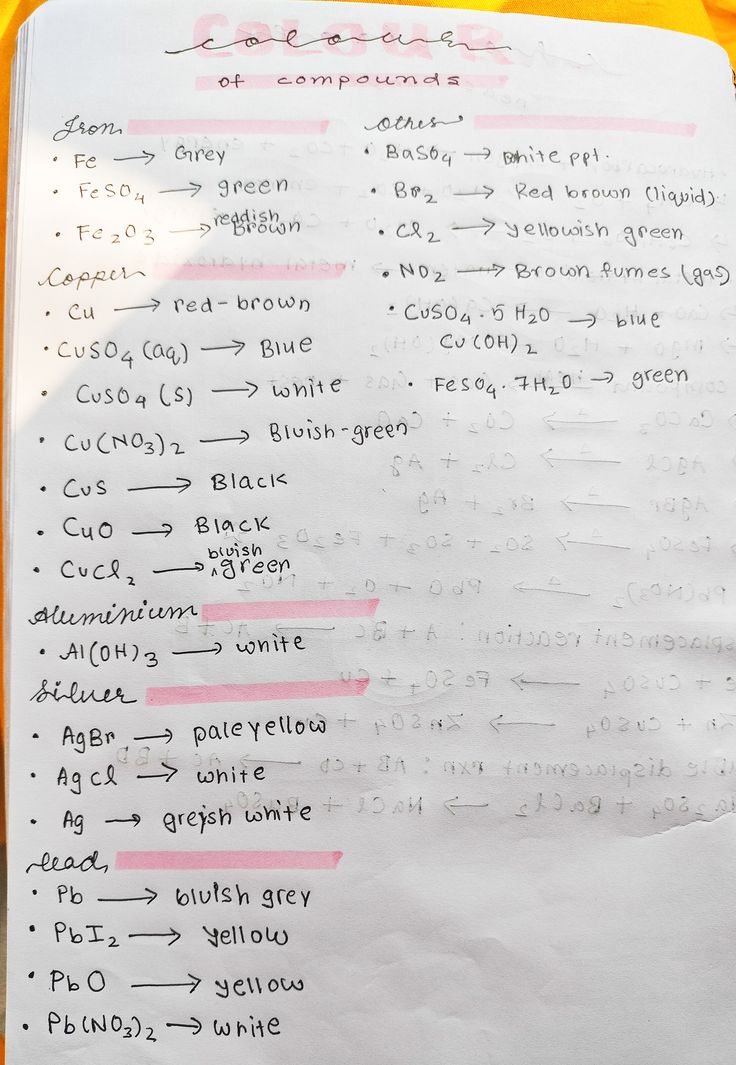 COLOUR
of compounds
Iron
• Fe → Grey
• FeSO4 → green
• Fe2O3 → reddish Brown
Copper
• Cu → red-brown
• CuSO4 (aq) → Blue
• CuSO4 (s) → white
• Cu(NO3)2 → Bluish-green
• CuS → Black
• CuO → Black
• CuCl2 → bluish green
Aluminium
• Al(OH)3 → white
Silver
• AgBr → pale yellow
• AgCl → white
• Ag → greyish white
Lead
• Pb → bluish grey
• PbI2 → yellow
• PbO → yellow
• Pb(NO3)2 → white
Other
• BaSO4 → white ppt.
• Br2 → Red brown (liquid)
• Cl2 → yellowish green
• NO2 → Brown fumes (gas)
• CuSO4 · 5H2O → blue
Cu(OH)2
• FeSO4 · 7H2O → green